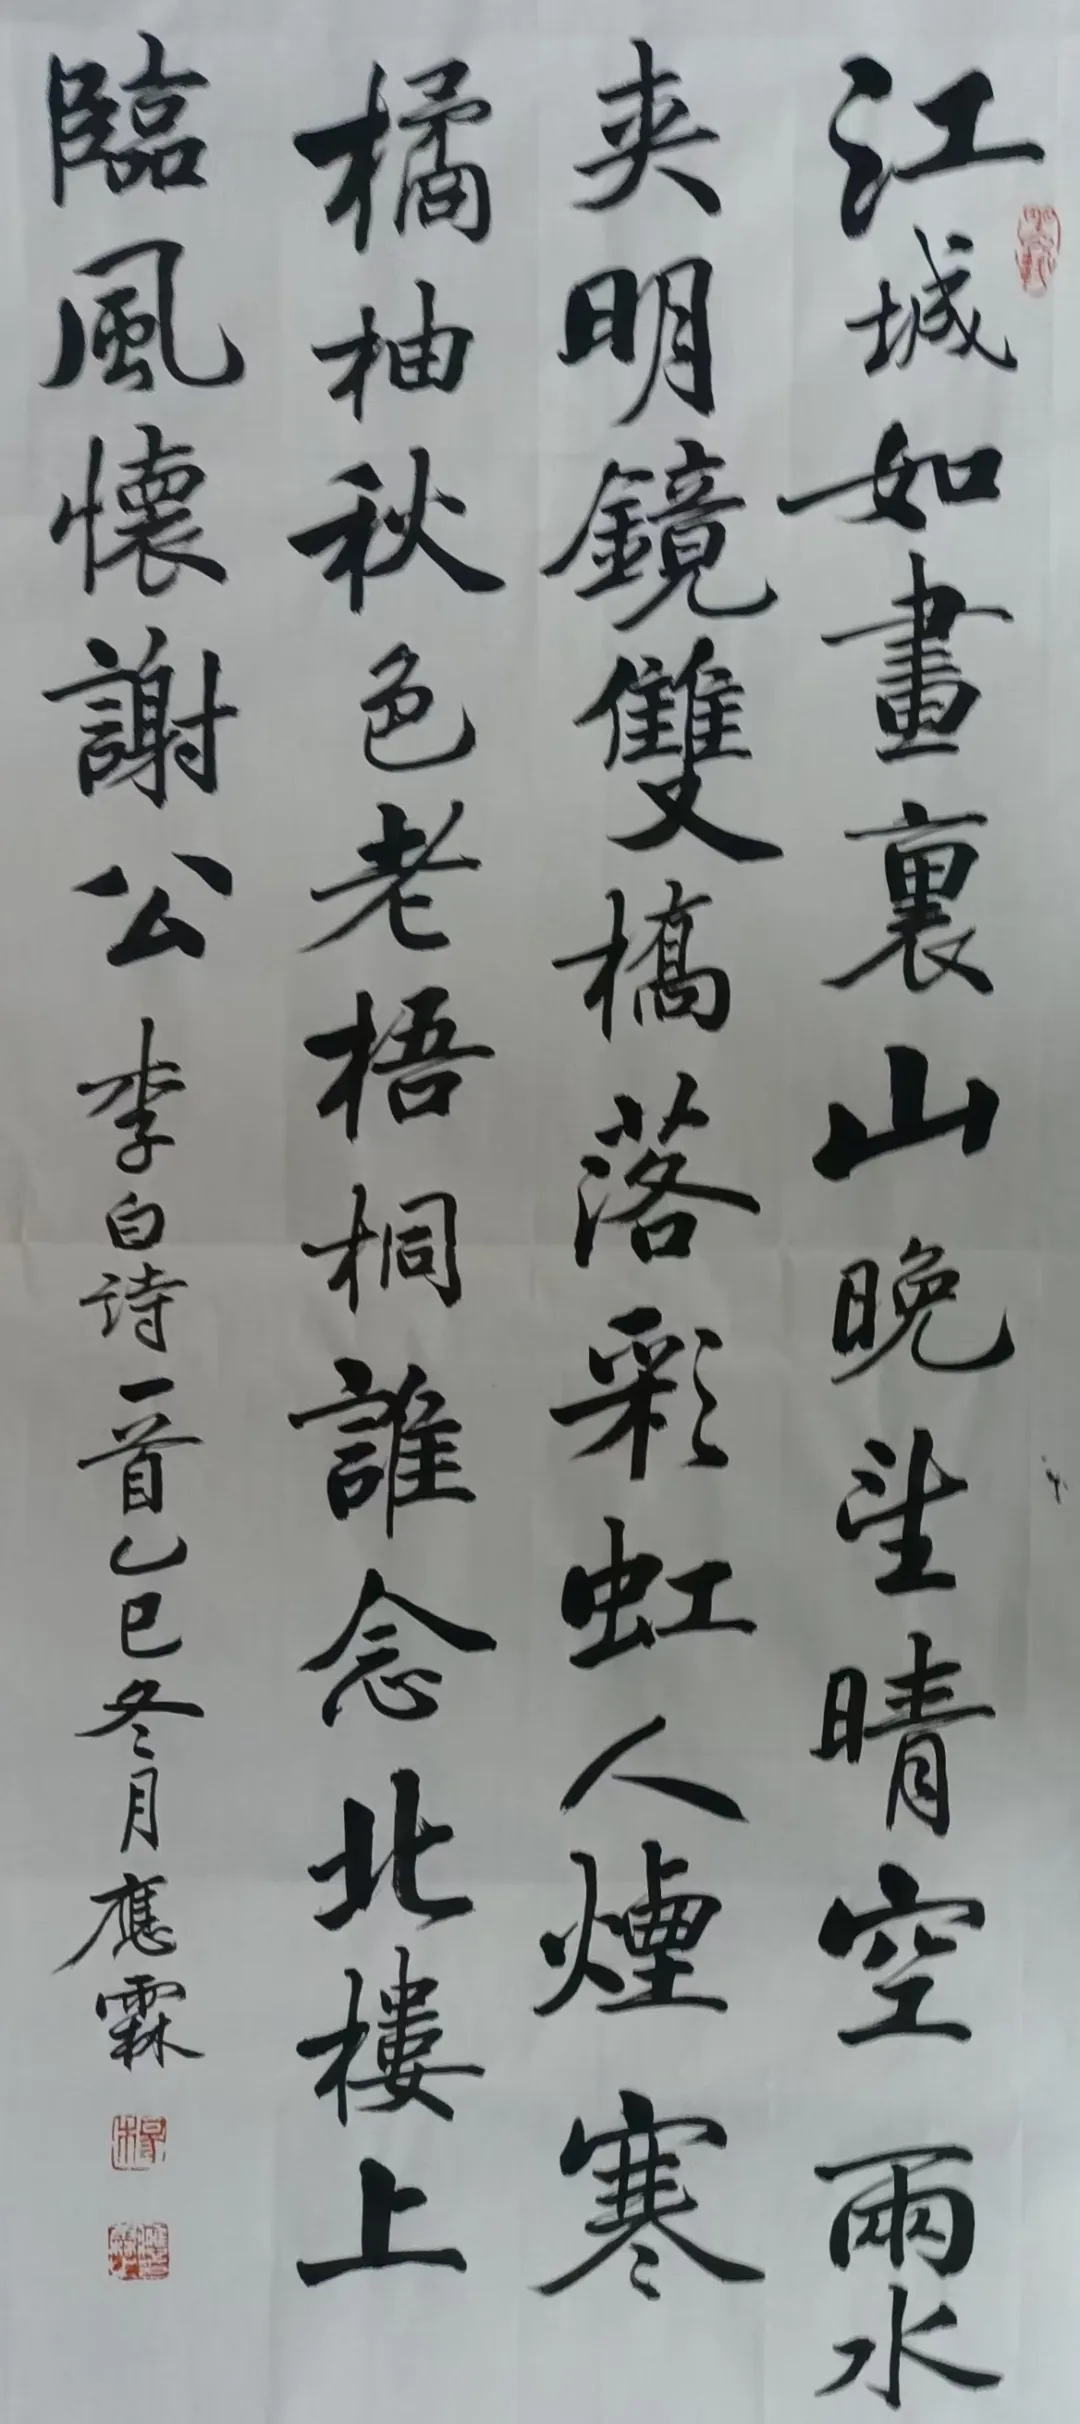 江城如畫裏山晚望晴空兩水
夾明鏡雙橋落彩虹人煙寒
橘柚秋色老梧桐誰念北樓上
臨風懷謝公
李白诗一首乙巳冬月應霖